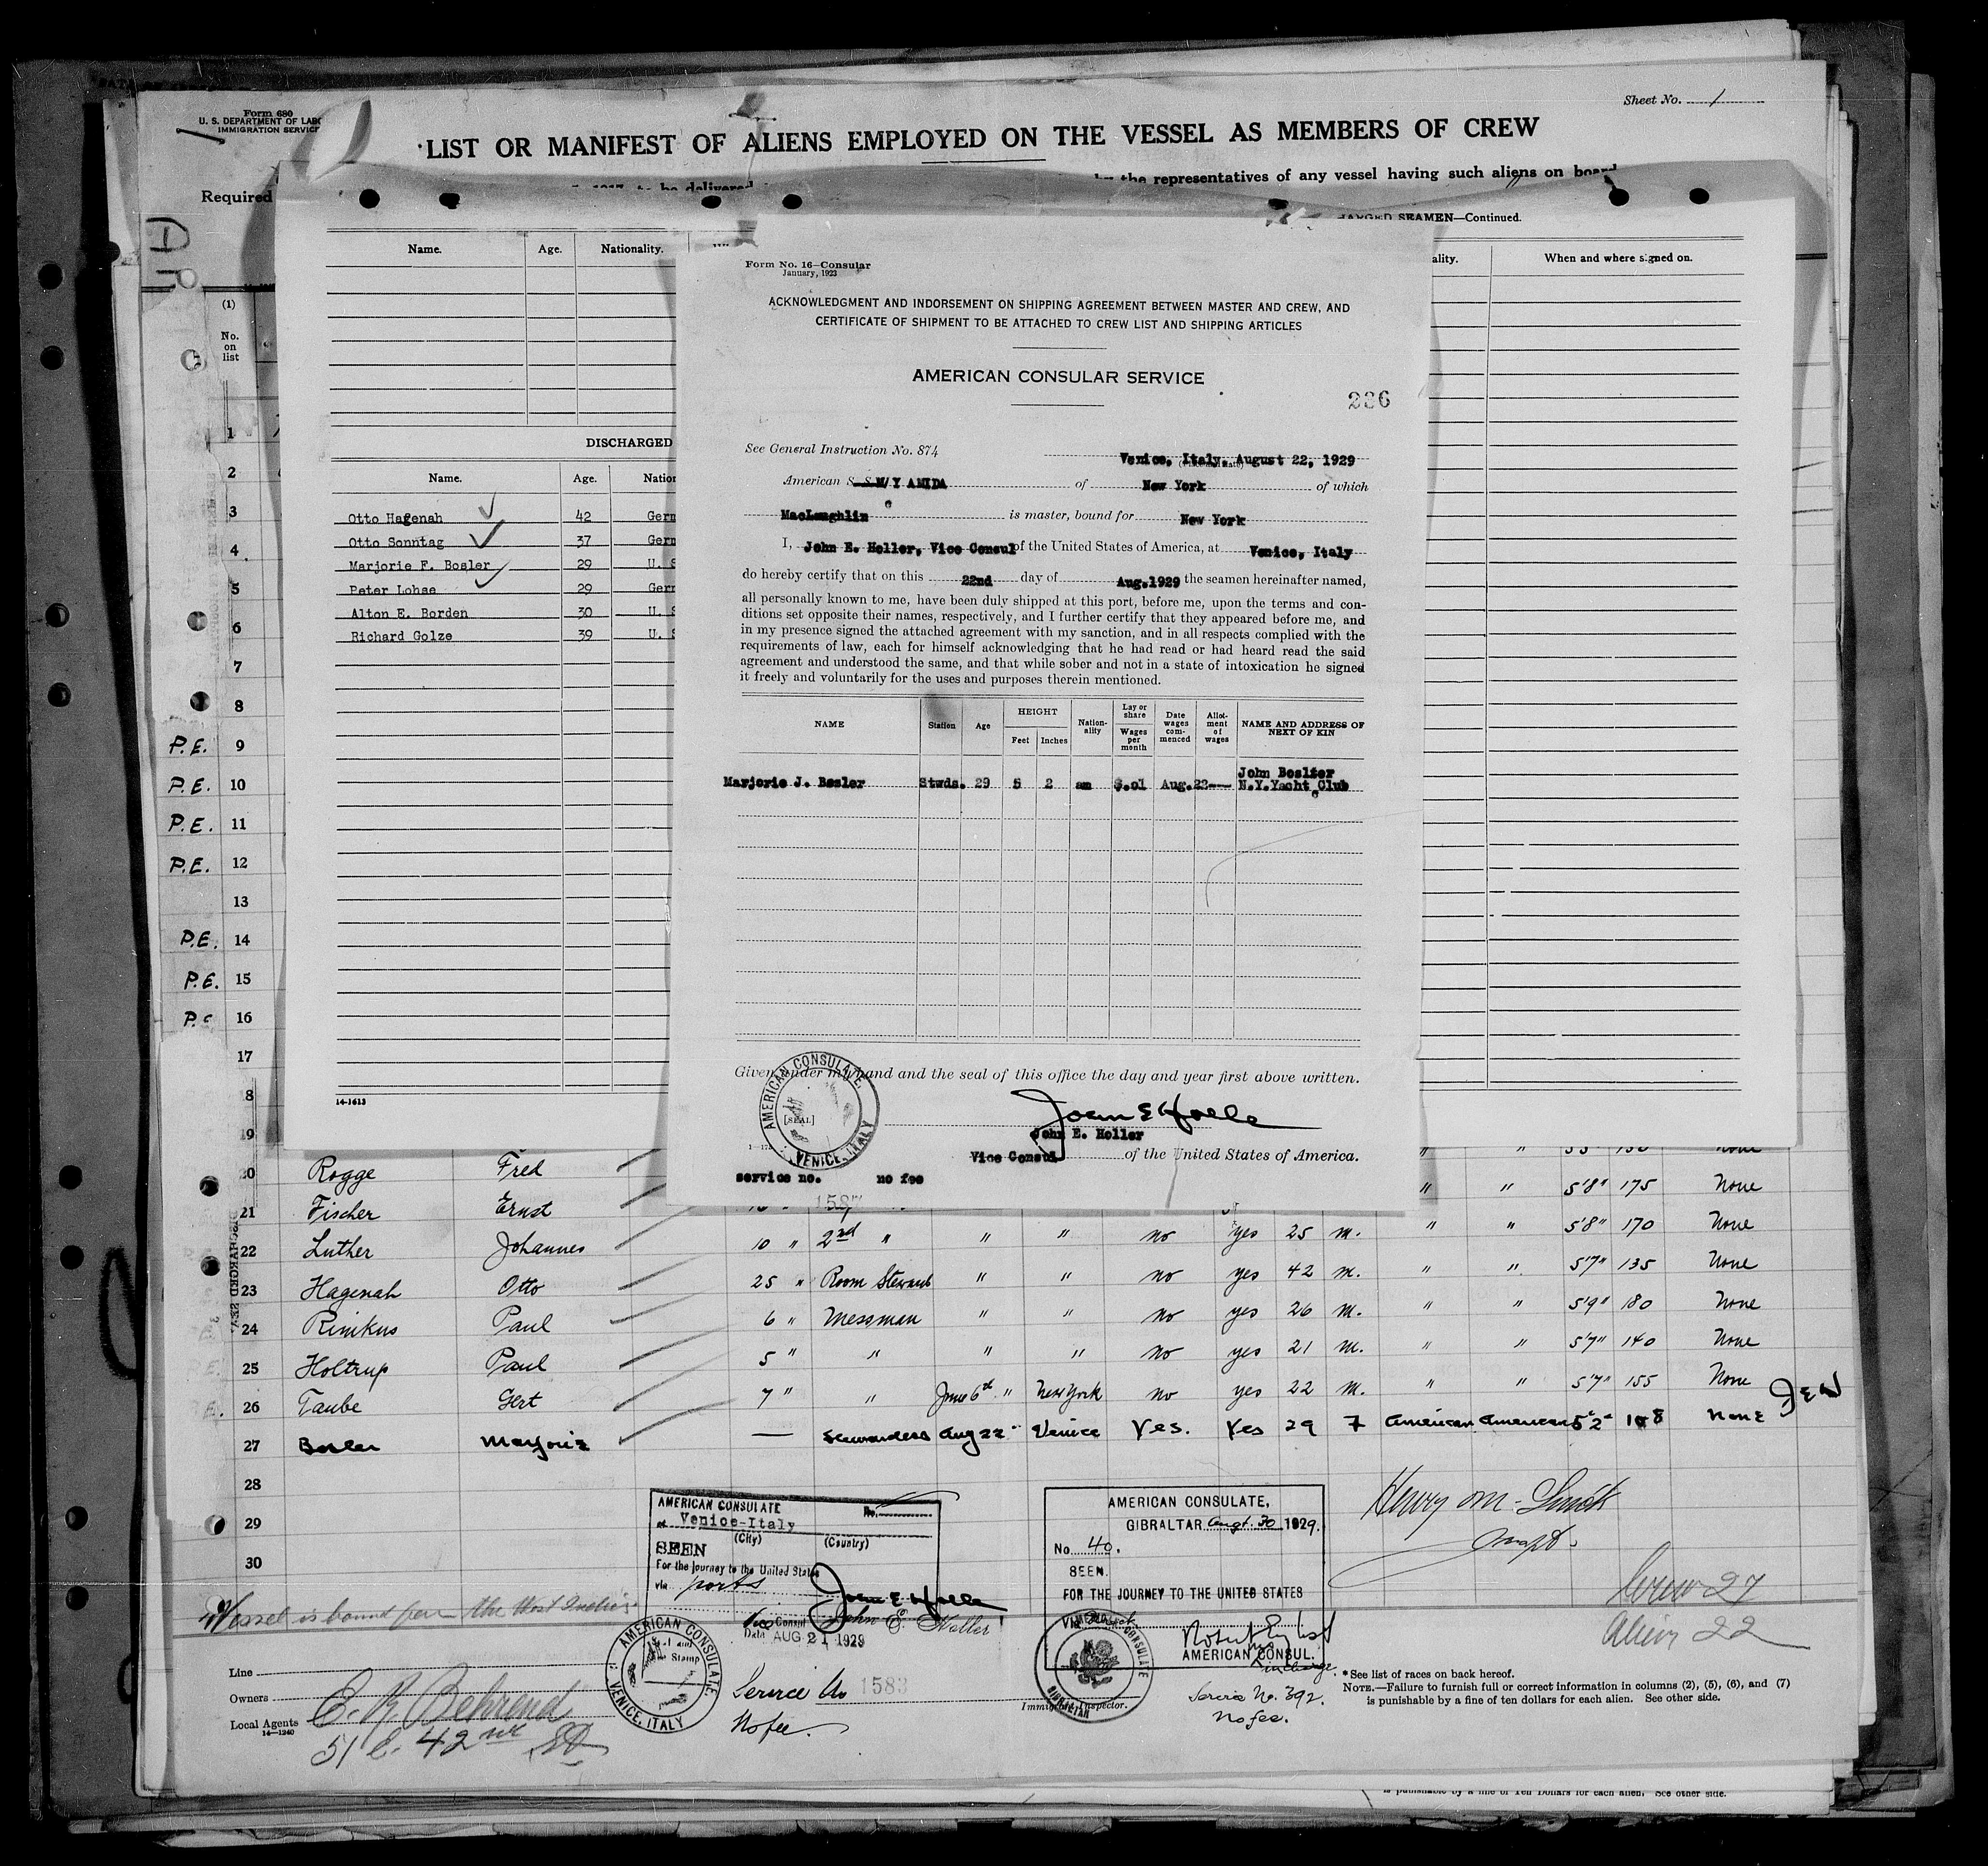 Form 680
U. S. DEPARTMENT OF
IMMIGRATION SERVICE
Sheet No. 1
LIST OR MANIFEST OF ALIENS EMPLOYED ON THE VESSEL AS MEMBERS OF CREW
Required
to be delivered
the representatives of any vessel having such aliens on board
SEAMEN—Continued.
Name. Age. Nationality.
When and where signed on.
(1)
No. on list
DISCHARGED
Name. Age.
Otto Hagenah 42
Otto Sonntag 37
Marjorie F. Bosler 29 U. S
Peter Lohse 29
Alton E. Borden 30 U. S
Richard Golze 39 U. S
14-1613
Form No. 16—Consular
January, 1923
ACKNOWLEDGMENT AND INDORSEMENT ON SHIPPING AGREEMENT BETWEEN MASTER AND CREW, AND
CERTIFICATE OF SHIPMENT TO BE ATTACHED TO CREW LIST AND SHIPPING ARTICLES
AMERICAN CONSULAR SERVICE
226
See General Instruction No. 874
Venice, Italy, August 22, 1929
American S. S. M/Y AMIDA of New York of which
MacLoughlin is master, bound for New York
I, John E. Holler, Vice Consul of the United States of America, at Venice, Italy
do hereby certify that on this 22nd day of Aug.1929 the seamen hereinafter named,
all personally known to me, have been duly shipped at this port, before me, upon the terms and con-
ditions set opposite their names, respectively, and I further certify that they appeared before me, and
in my presence signed the attached agreement with my sanction, and in all respects complied with the
requirements of law, each for himself acknowledging that he had read or had heard read the said
agreement and understood the same, and that while sober and not in a state of intoxication he signed
it freely and voluntarily for the uses and purposes therein mentioned.
NAME Station Age HEIGHT Feet Inches Nation-ality Lay or share Wages per month Date wages com-menced Allot-ment of wages NAME AND ADDRESS OF NEXT OF KIN
John Bosler
Marjorie J. Bosler Stwds. 29 5 2 am $.01 Aug.22--- N.Y.Yacht Club
Given under my hand and the seal of this office the day and year first above written.
AMERICAN CONSULATE. VENICE, ITALY
[SEAL]
John E. Holler
Vice Consul of the United States of America.
service no. no fee
1587
1
2
3
4
5
6
7
8
P.E. 9
P.E. 10
P.E. 11
P.E. 12
13
P.E. 14
P.E. 15
16
17
18
19
20 Rogge Fred " " 5'8" 175 None
21 Fischer Ernst " " 5'8" 170 None
22 Luther Johannes 10 " 2nd " " " no yes 25 m. " " 5'7" 135 None
23 Hagenah Otto 25 " Room Steward " " no yes 42 m. " " 5'9" 180 None
24 Rinikus Paul 6 " Messman " " no yes 26 m. " " 5'7" 140 None
25 Holtrup Paul 5 " " " " no yes 21 m. " " 5'7" 155 None
26 Taube Gert 7 " " June 6th " New York no yes 22 m.
27 Bosler Marjorie — Stewardess Aug 22 Venice Yes. Yes 29 F American American 5'2" 108 None
28
29
30
AMERICAN CONSULATE
Venice-Italy
(City) (Country)
No.
SEEN
For the journey to the United States
via ports
Vice Consul John E. Holler
Date AUG 21 1929
AMERICAN CONSULATE. VENICE, ITALY
Service No 1583
No fee.
AMERICAN CONSULATE,
GIBRALTAR Augt. 30 1929.
No. 40.
SEEN.
FOR THE JOURNEY TO THE UNITED STATES
Via direct
AMERICAN CONSUL.
in charge.
AMERICAN CONSULATE GIBRALTAR
Service No. 392.
No fee.
Henry M. Smith
Crew 27
Alien 22
Vessel is bound for the West Indies.
Line
Owners
Local Agents C. R. Behrend
14—1240
51 E. 42nd St
Immigrant Inspector.
* See list of races on back hereof.
NOTE.—Failure to furnish full or correct information in columns (2), (5), (6), and (7)
is punishable by a fine of ten dollars for each alien. See other side.
is punishable by a fine of Ten Dollars for each alien. See other side.